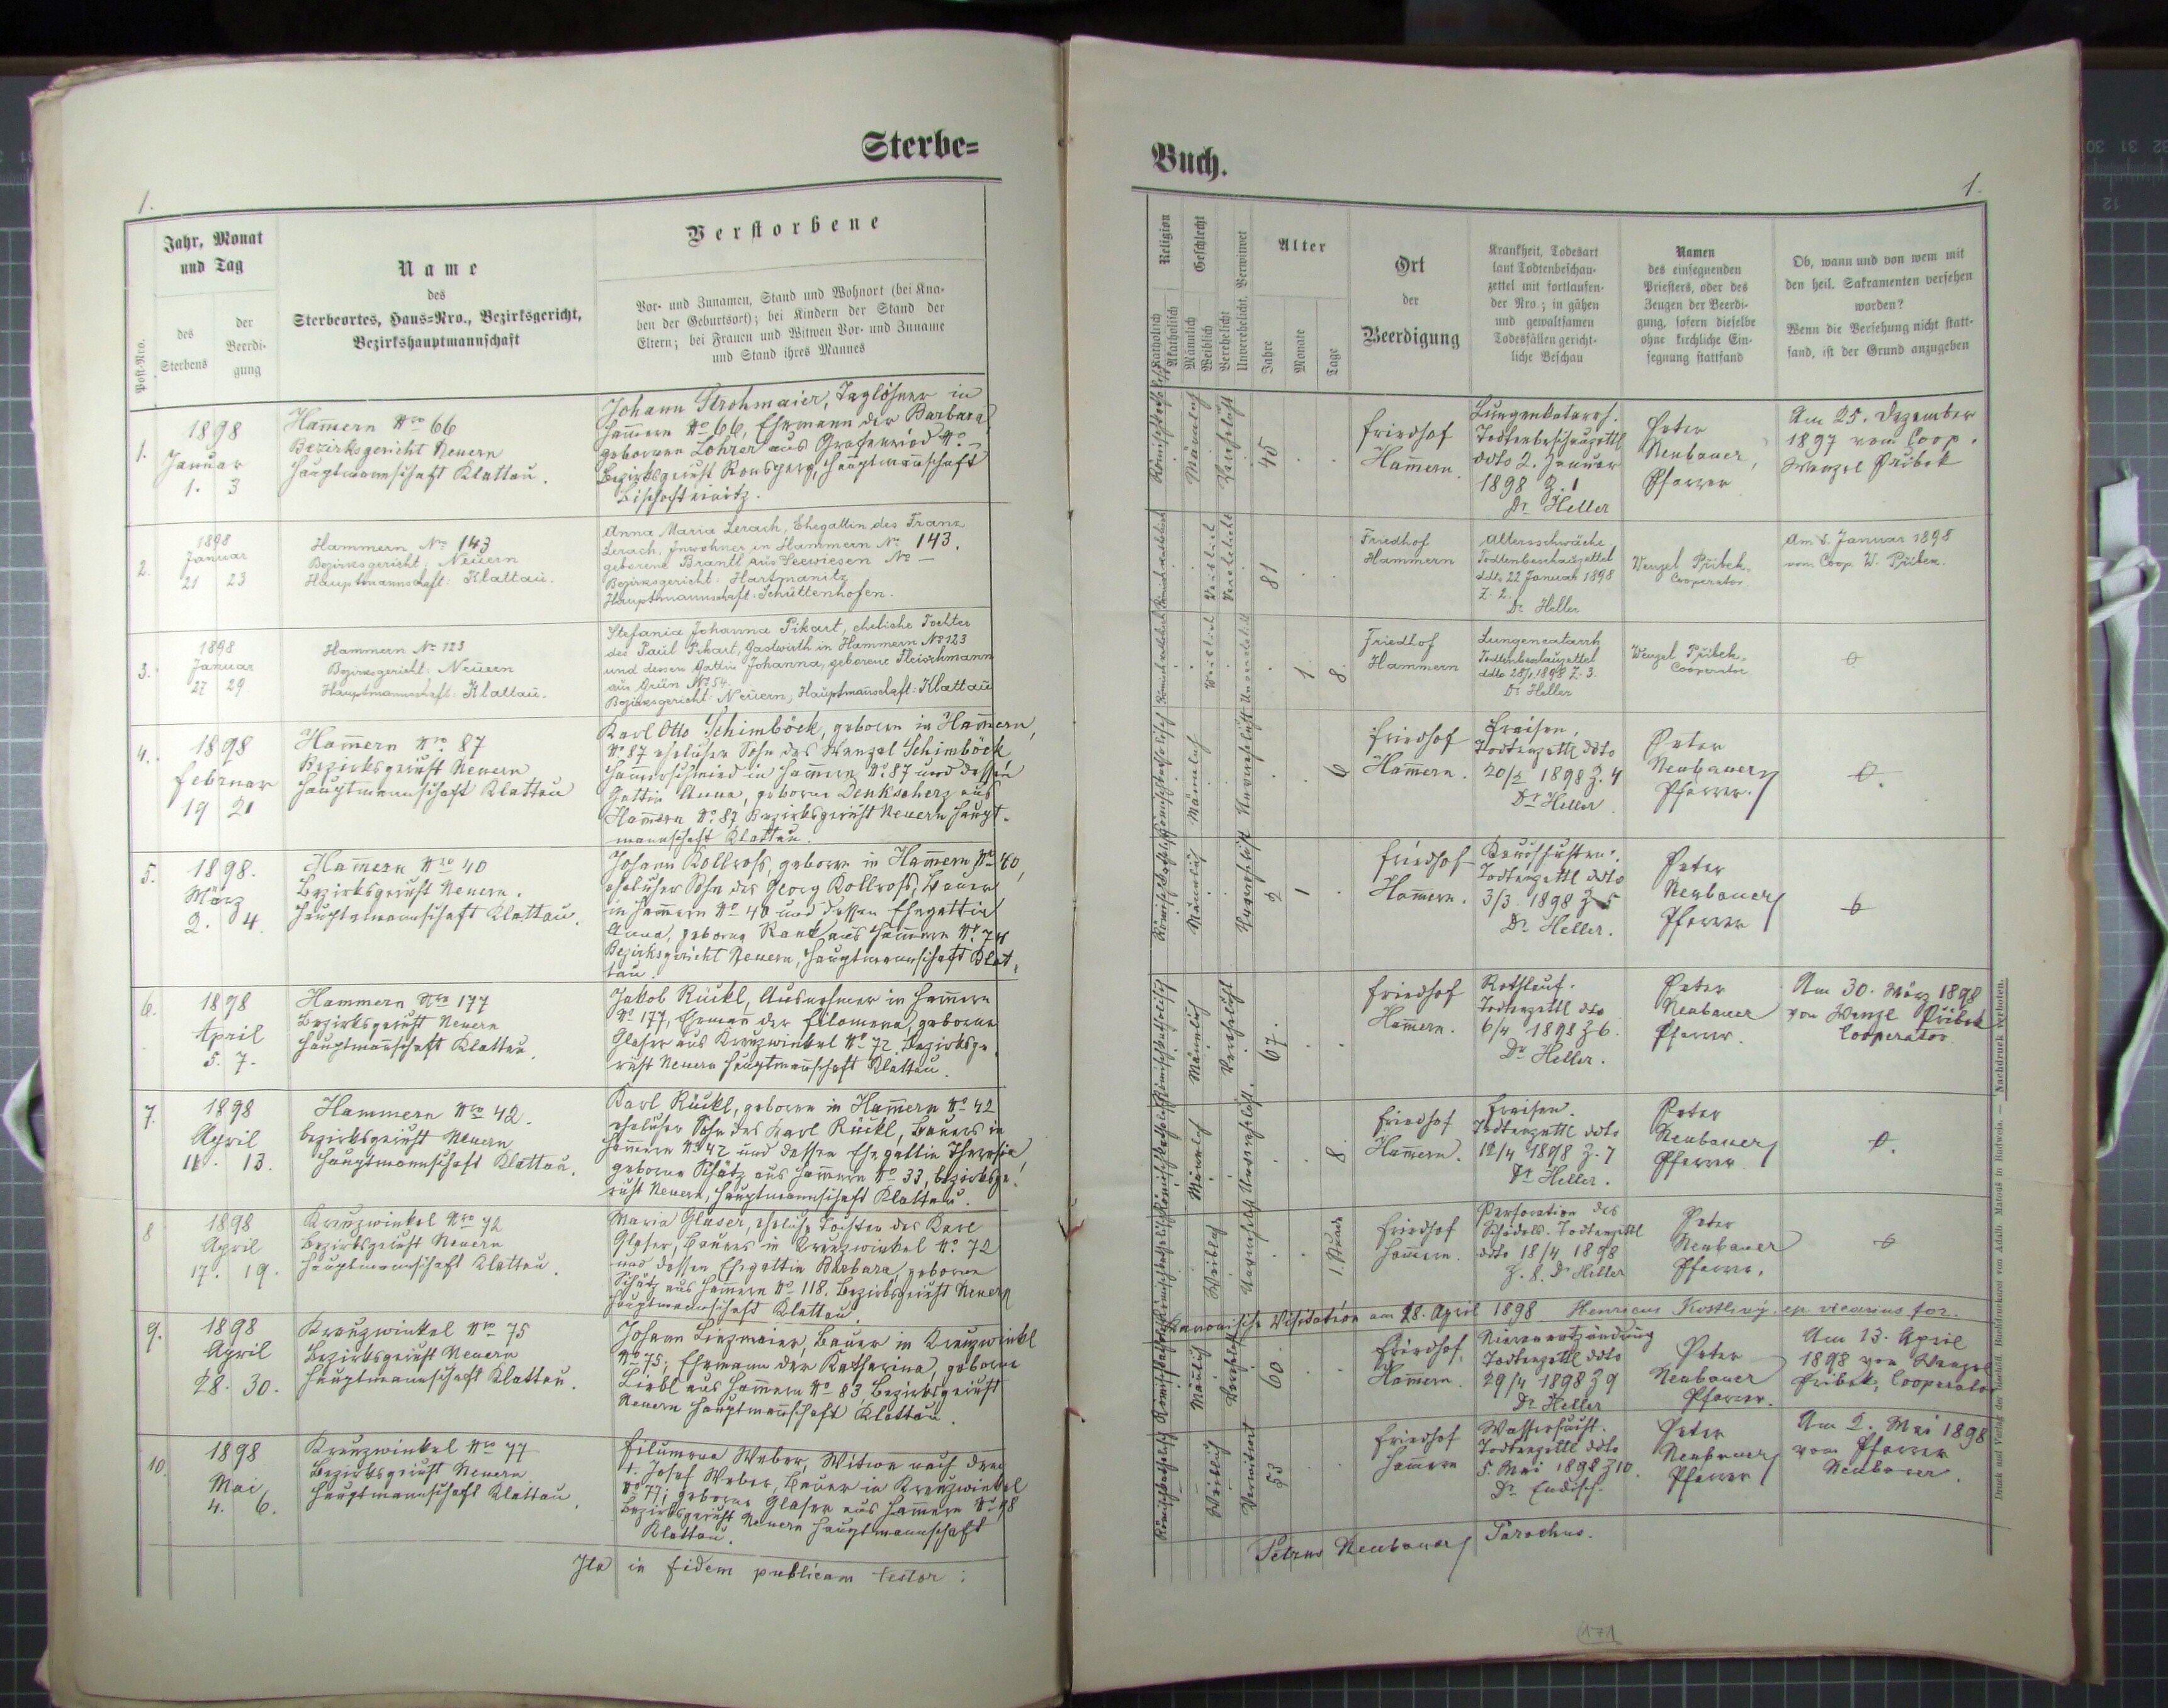 Sterbe-
1.
Post-Nro.
Jahr, Monat
und Tag
des
Sterbens
der
Beerdi-
gung
Name
des
Sterbeortes, Haus-Nro., Bezirksgericht,
Bezirkshauptmannschaft
Verstorbene
Vor- und Zunamen, Stand und Wohnort (bei Kna-
ben der Geburtsort); bei Kindern der Stand der
Eltern; bei Frauen und Witwen Vor- und Zuname
und Stand ihres Mannes
1.
1898
Januar
1. 3
Ham̅ern Nro 66
Bezirksgericht Neuern
Hauptmannschaft Klattau.
Johann Strohmaier, Taglöhner in
Ham̅ern No 66, Ehemann der Barbara
geborenen Lohrer aus Grafenried No –
Bezirksgericht Ronsperg, Hauptman̅schaft
Bischofteinitz.
2.
1898
Januar
21 23
Hammern No 143
Bezirksgericht: Neuern
Hauptmannschaft: Klattau.
Anna Maria Lerach, Ehegattin des Franz
Lerach, Inwohner in Hammern No 143,
geborene Brantl aus Seewiesen No –
Bezirksgericht: Hartmanitz
Hauptmannschaft: Schüttenhofen.
3.
1898
Januar
27 29
Hammern No 123
Bezirksgericht: Neuern
Hauptmannschaft: Klattau.
Stefania Johanna Pikart, eheliche Tochter
des Paul Pikart, Gastwirth in Hammern No 123
und dessen Gattin Johanna, geborene Fleischmann
aus Grün No 54.
Bezirksgericht: Neuern, Hauptman̅schaft: Klattau
4.
1898
Februar
19 21
Ham̅ern Nro 87
Bezirksgericht Neuern
Hauptmannschaft Klattau
Karl Otto Schimböck, geboren in Ham̅ern,
No 87 ehelicher Sohn des Wenzel Schimböck
Ham̅erschmied in Ham̅ern No 87 und dessen
Gattin Anna, geborne Denkscherz aus
Ham̅ern No 87 Bezirksgericht Neuern Haupt-
mannschaft Klattau.
5.
1898.
März
2. 4.
Ham̅ern Nro 40
Bezirksgericht Neuern.
Hauptmannschaft Klattau.
Johann Kollross, geboren in Ham̅ern No 40,
ehelicher Sohn des Georg Kollross, Bauer
in Ham̅ern No 40 und dessen Ehegattin
Anna, geborne Rank aus Ham̅ern No 74
Bezirksgericht Neuern, Hauptmannschaft Klat-
tau.
6.
1898
April
5. 7.
Hammern Nro 177
Bezirksgericht Neuern
Hauptman̅schaft Klattau.
Jakob Rückl, Ausnehmer in Ham̅ern
No 177, Eheman der Filomena, geborene
Glaser aus Kreuzwinkel No 72 Bezirksge-
richt Neuern Hauptman̅schaft Klattau.
7.
1898
April
11. 13.
Hammern Nro 42.
Bezirksgericht Neuern
Hauptmannschaft Klattau.
Karl Rückl, geboren in Ham̅ern No 42
ehelicher Sohn des Karl Rückl, Bauers in
Ham̅ern No 42 und dessen Ehegattin Theresia,
geborne Schätz aus Ham̅ern No 33, Bezirksge-
richt Neuern, Hauptmannschaft Klattau.
8
1898
April
17. 19.
Kreuzwinkel Nro 72
Bezirksgericht Neuern
Hauptmannschaft Klattau.
Maria Glaser, eheliche Tochter des Karl
Glaser, Bauers in Kreuzwinkel No 72
und dessen Ehegattin Barbara, geborne
Schätz aus Ham̅ern No 118. Bezirksgericht Neuern
Hauptmannschaft Klattau.
9.
1898
April
28. 30.
Kreuzwinkel Nro 75
Bezirksgericht Neuern
Hauptmannschaft Klattau.
Johann Linzmaier, Bauer in Kreuzwinkl
No 75, Ehemann der Katharina, geborne
Liebl aus Ham̅ern No 83, Bezirksgericht
Neuern Hauptman̅schaft Klattau.
10.
1898
Mai
4. 6.
Kreuzwinkel Nro 77
Bezirksgericht Neuern
Hauptmannschaft Klattau.
Filumena Weber, Witwe nach dem
†. Josef Weber, Bauer in Kreuzwinkel
No 77, geborne Glaser aus Ham̅ern No 98
Bezirksgericht Neuern Hauptmannschaft
Klattau.
Ita in fidem publicam testor:
Buch.
1.
Religion
Katholisch
Akatholisch
Geschlecht
Männlich
Weiblich
Verehelicht
Unverehelicht, Verwitwet
Alter
Jahre
Monate
Tage
Ort
der
Beerdigung
Krankheit, Todesart
laut Todtenbeschau-
zettel mit fortlaufen-
der Nro.; in gähen
und gewaltsamen
Todesfällen gericht-
liche Beschau
Namen
des einsegnenden
Priesters, oder des
Zeugen der Beerdi-
gung, sofern dieselbe
ohne kirchliche Ein-
segnung stattfand
Ob, wann und von wem mit
den heil. Sakramenten versehen
worden?
Wenn die Versehung nicht statt-
fand, ist der Grund anzugeben
Männlich
Verehelicht
45
Friedhof
Ham̅ern.
Lungenkatarrh.
Todtenbeschauzettl
ddto 2. Januar
1898 Z. 1
Dr Heller
Peter
Neubauer,
Pfarrer
Am 25. Dezember
1897 vom Coop.
Wenzel Přibek
Weiblich
Verehelicht
81
Friedhof
Hammern
Altersschwäche,
Todtenbeschauzettel
ddto 22 Januar 1898
Z. 2.
Dr Heller
Wenzel Přibek,
Cooperator
Am 8. Januar 1898
vom Coop W. Přibek.
Weiblich
Unverehelicht
1
8
Friedhof
Hammern
Lungencatarrh
Todtenbeschauzettel
ddto 28/1 1898 Z. 3.
Dr Heller
Wenzel Přibek,
Cooperator
Männlich
Unverehelicht
6
Friedhof
Ham̅ern.
Fraisen,
Todtenzettl ddto
20/2 1898 Z. 4
Dr Heller.
Peter
Neubauer
Pfarrer.
Männlich
Unverehelicht
2
1
Friedhof
Ham̅ern.
Todtenzettl ddto
3/3. 1898 Z 5
Dr Heller.
Peter
Neubauer
Pfarrer
Männlich
Verehelicht
67.
Friedhof
Ham̅ern.
Rothlauf.
Todtenzettl dto
6/4 1898 Z 6.
Dr Heller.
Peter
Neubauer
Pfarrer.
Am 30. März 1898
von Wenzl Přibek
Cooperator.
Männlich
Unverehelicht.
8
Friedhof
Ham̅ern.
Fraisen.
Todtenzettl ddto
12/4 1898 Z. 7
Dr Heller.
Peter
Neubauer
Pfarrer
Weiblich
Unverehelicht
1. Stunde
Friedhof
Ham̅ern.
Perforation des
Schädels. Todtenzettl
ddto 18/4 1898
Z. 8. Dr Heller
Peter
Neubauer
Pfarrer.
Kanonische Visitation am 28. April 1898 Henricus Kostlivý, ep. vicarius for.
Männlich
Verehelicht
60.
Friedhof
Ham̅ern.
Nierenentzündung
Todtenzettl ddto
29/4 1898 Z 9
Dr Heller
Peter
Neubauer
Pfarrer.
Am 13. April
1898 von Wenzel
Přibek, Cooperator
Weiblich
Verwitwet
53
Friedhof
Ham̅ern
Wassersucht.
Todtenzettl ddto
5. Mai 1898 Z 10.
Dr. Endisch.
Peter
Neubauer
Pfarrer
Am 2. Mai 1898
vom Pfarrer
Neubauer.
Petrus Neubauer Parochus.
Druck und Verlag der bischöfl. Buchdruckerei von Adalb. Matouš in Budweis. — Nachdruck verboten.
171